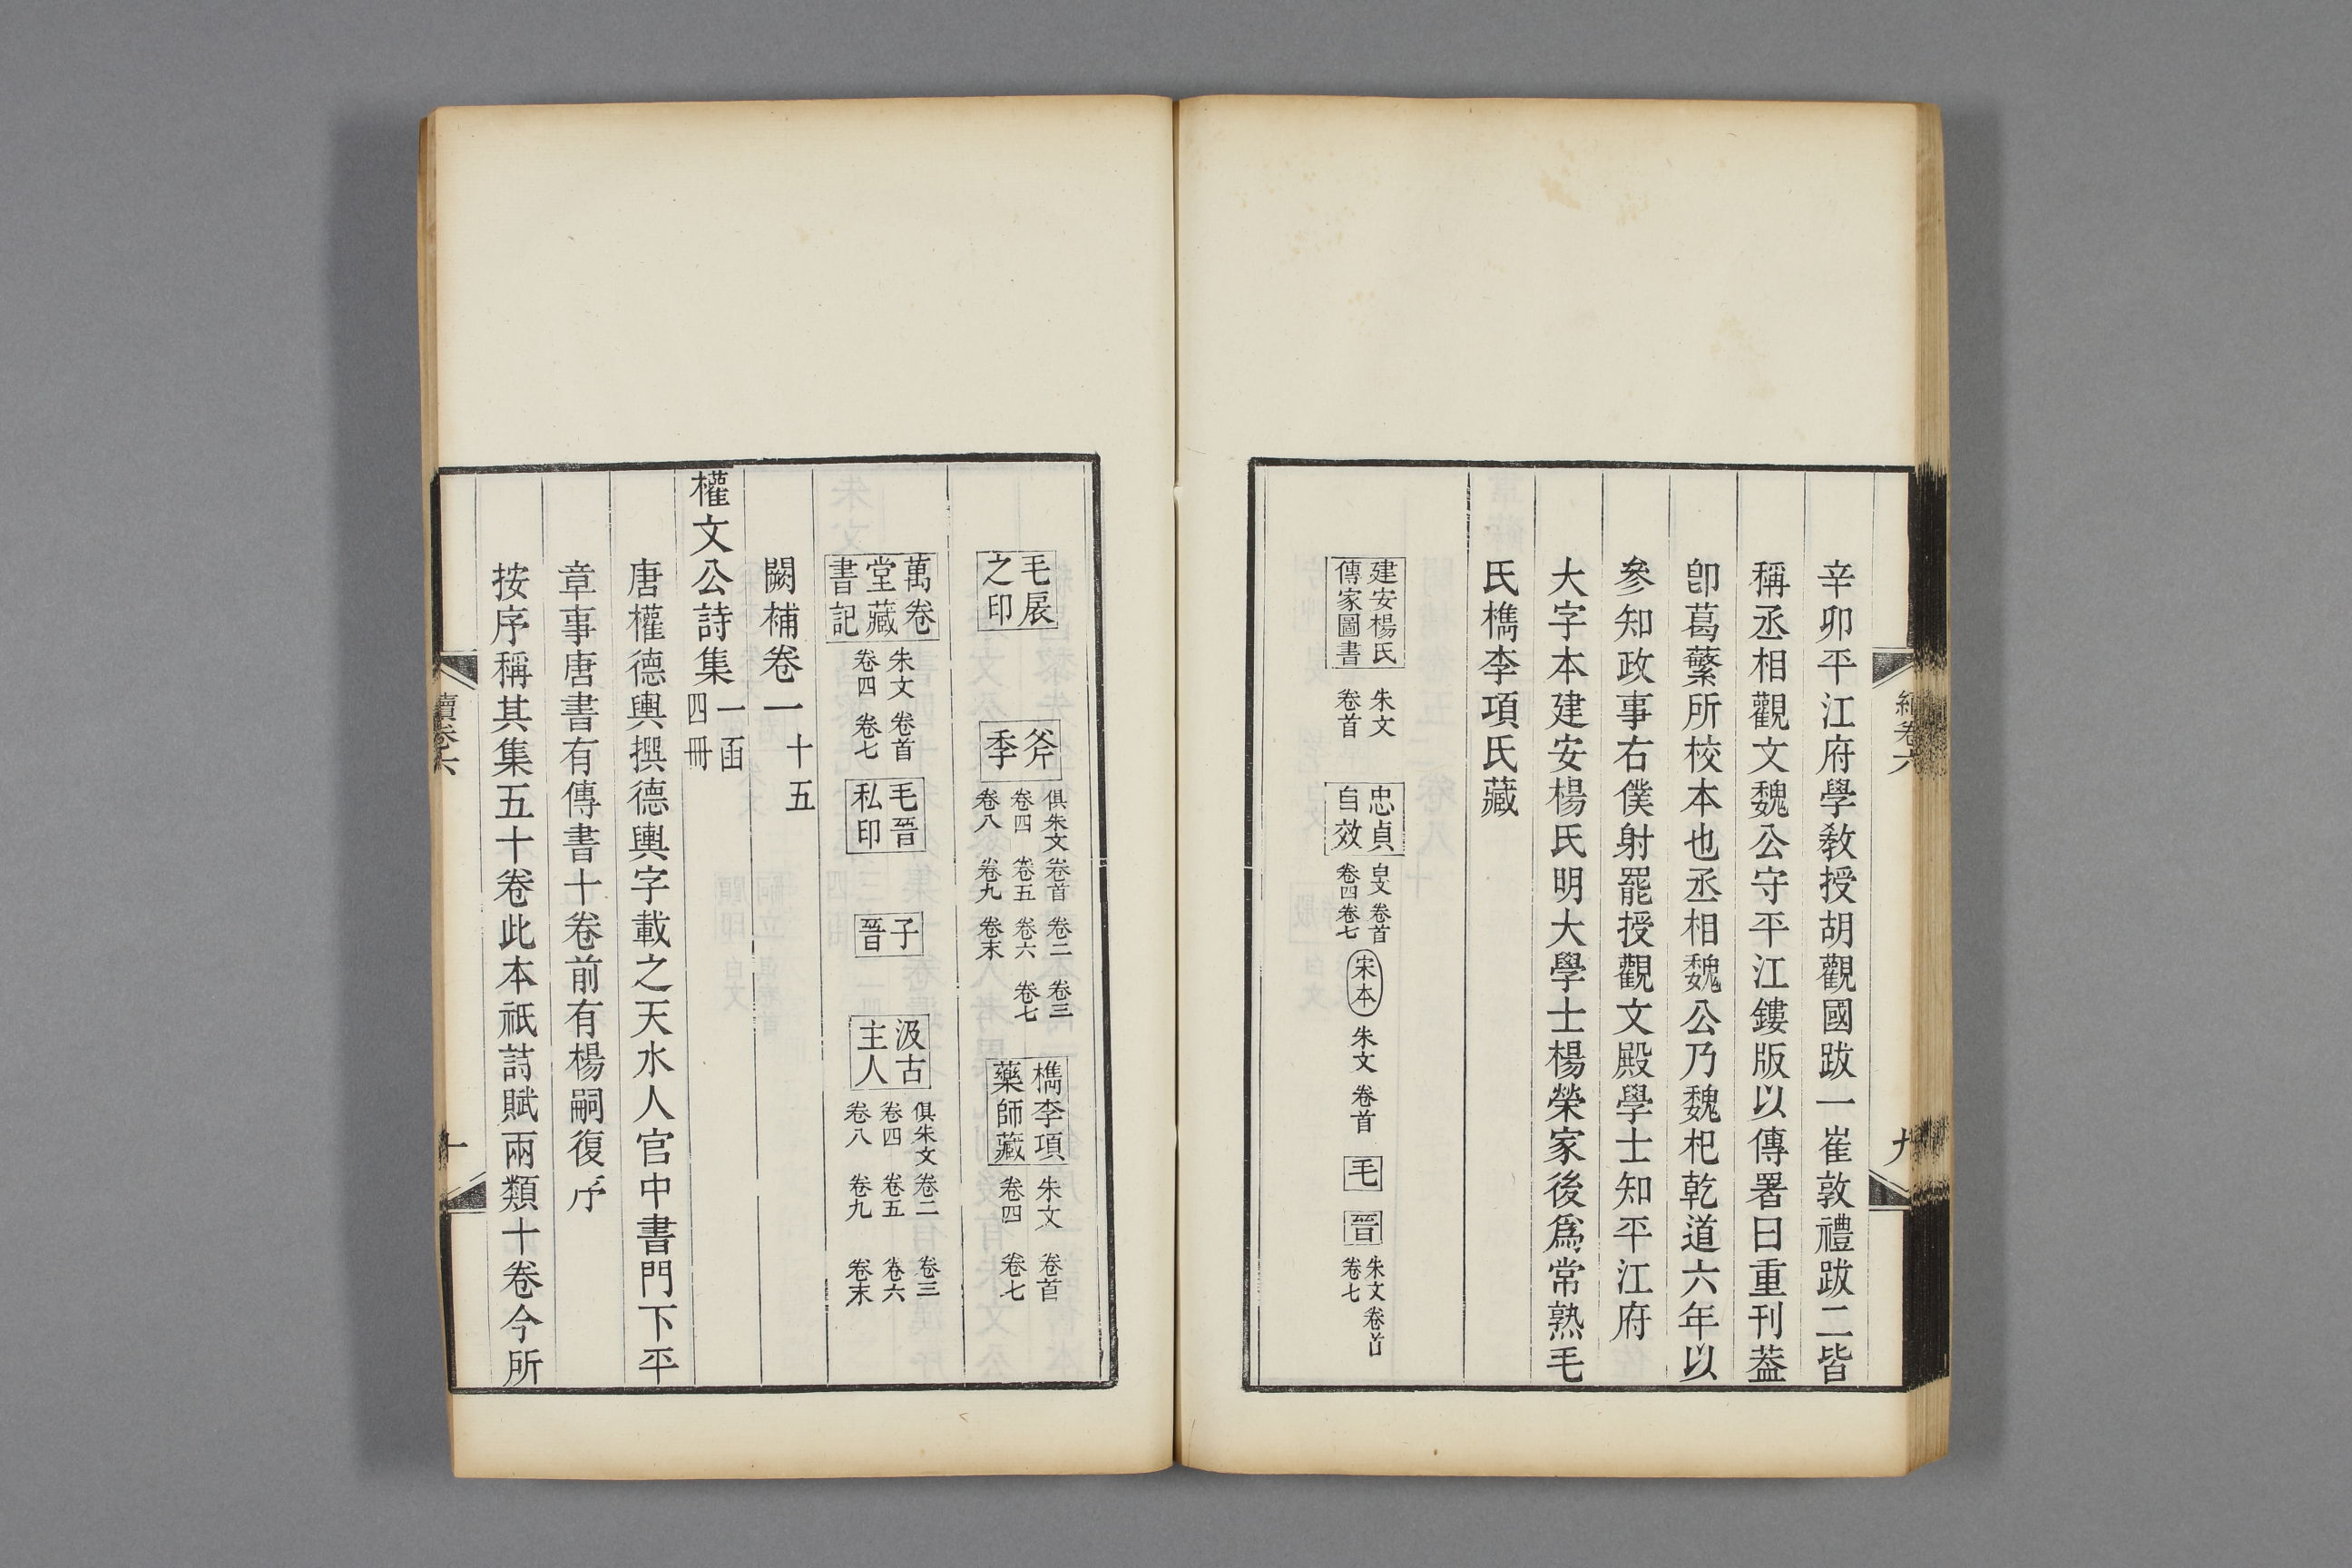 辛卯平江府學敎授胡觀國跋一崔敦禮跋二皆
稱丞相觀文魏公守平江鏤版以傳署曰重刊葢
卽葛蘩所校本也丞相魏公乃魏杞乾道六年以
參知政事右僕射罷授觀文殿學士知平江府
大字本建安楊氏明大學士楊榮家後爲常熟毛
氏檇李項氏藏
建安楊氏
傳家圖書
朱文
卷首
忠貞
自效
白文 卷首
卷四 卷七
宋本
朱文 卷首
毛
晉
朱文 卷首
卷七
九
毛扆
之印
斧
季
俱朱文 卷首 卷二 卷三
卷四 卷五 卷六 卷七
卷八 卷九 卷末
檇李項
藥師藏
朱文 卷首
卷四 卷七
萬卷
堂藏
書記
朱文 卷首
卷四 卷七
毛晉
私印
子
晉
汲古
主人
俱朱文 卷二 卷三
卷四 卷五 卷六
卷八 卷九 卷末
闕補卷一 十五
權文公詩集 一函
四冊
唐權德輿撰德輿字載之天水人官中書門下平
章事唐書有傳書十卷前有楊嗣復序
按序稱其集五十卷此本祇詩賦兩類十卷今所
續卷六
十